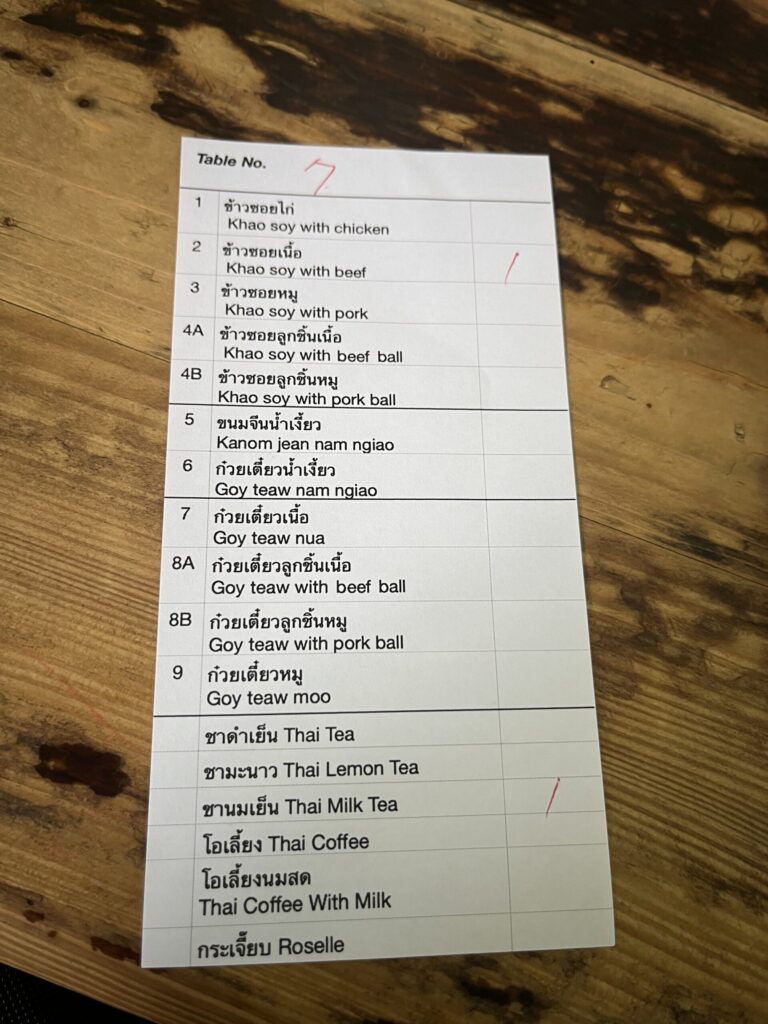 Table No. 7
1 ข้าวซอยไก่
Khao soy with chicken
2 ข้าวซอยเนื้อ 1
Khao soy with beef
3 ข้าวซอยหมู
Khao soy with pork
4A ข้าวซอยลูกชิ้นเนื้อ
Khao soy with beef ball
4B ข้าวซอยลูกชิ้นหมู
Khao soy with pork ball
5 ขนมจีนน้ำเงี้ยว
Kanom jean nam ngiao
6 ก๋วยเตี๋ยวน้ำเงี้ยว
Goy teaw nam ngiao
7 ก๋วยเตี๋ยวเนื้อ
Goy teaw nua
8A ก๋วยเตี๋ยวลูกชิ้นเนื้อ
Goy teaw with beef ball
8B ก๋วยเตี๋ยวลูกชิ้นหมู
Goy teaw with pork ball
9 ก๋วยเตี๋ยวหมู
Goy teaw moo
ชาดำเย็น Thai Tea
ชามะนาว Thai Lemon Tea
ชานมเย็น Thai Milk Tea 1
โอเลี้ยง Thai Coffee
โอเลี้ยงนมสด
Thai Coffee With Milk
กระเจี๊ยบ Roselle